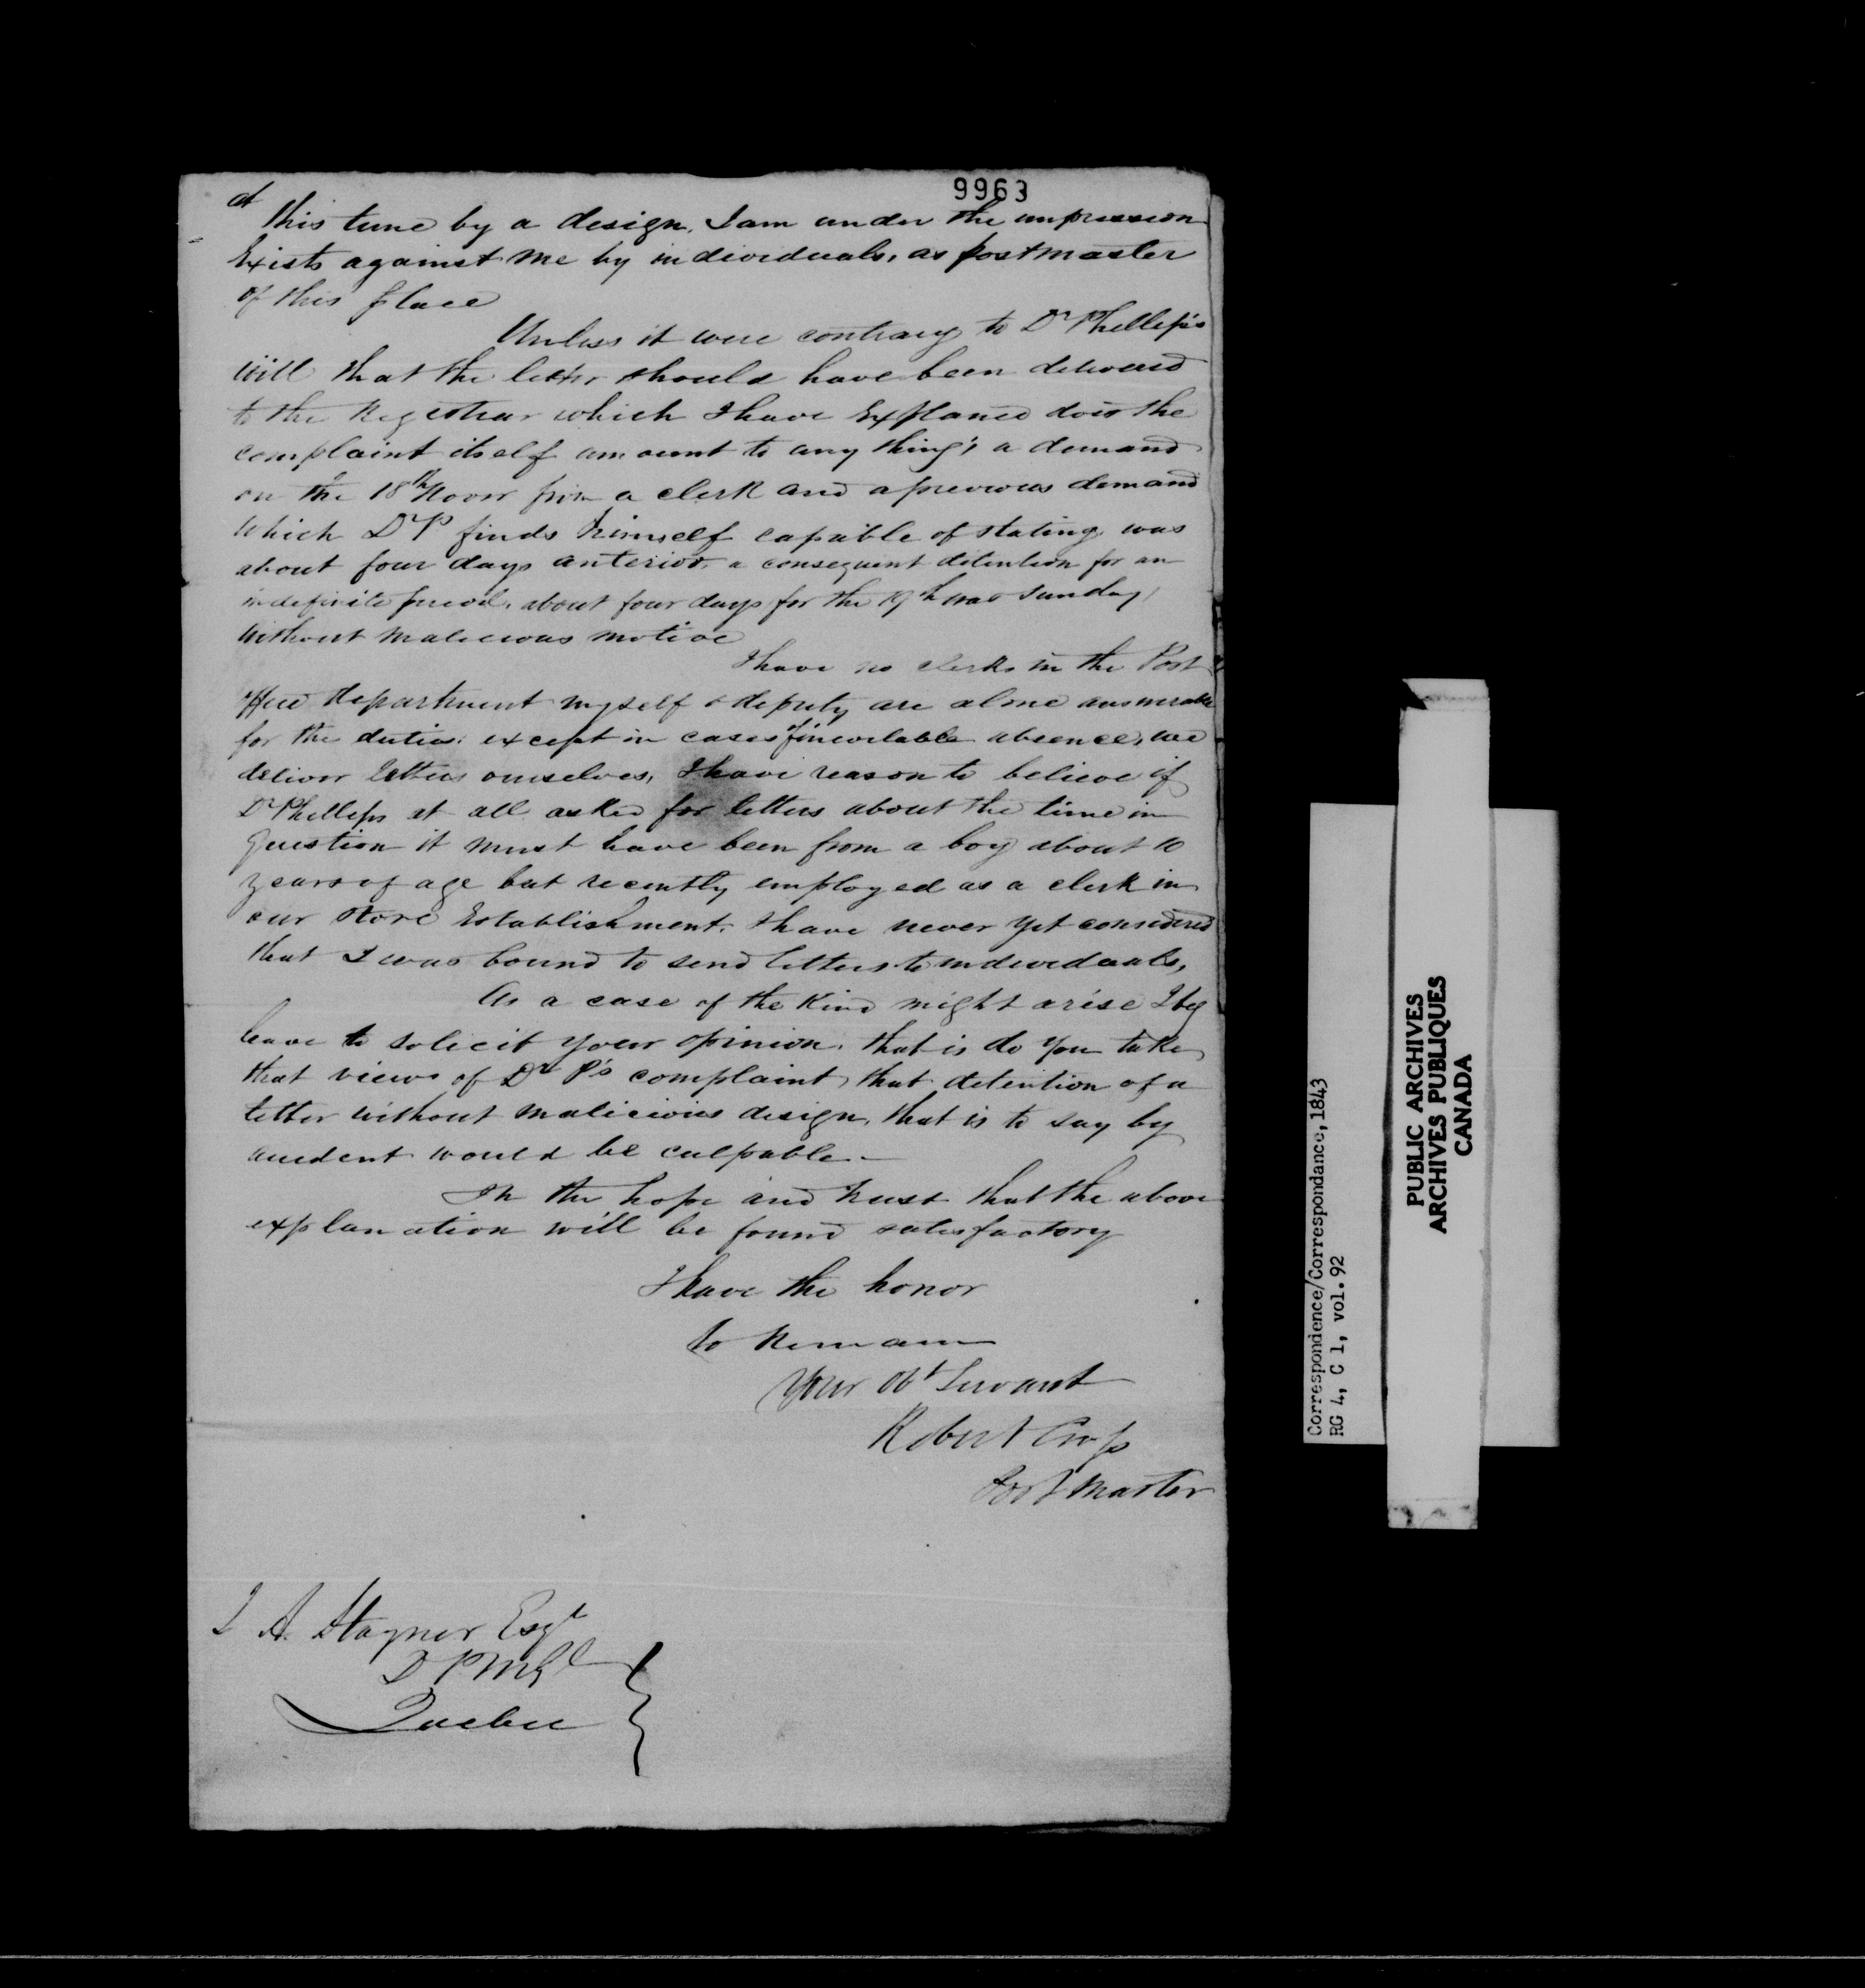 9963
at this time by a design, I am under the impression
Exists against me by individuals, as postmaster
of this place
Unless it were contrary to Dr Phellip's
will that the letter should have been delivered
to the Registrar which I have Explaned does the
complaint itself amount to any thing; a demand
on the 18th Novr from a clerk and a previous demand
which Dr P finds himself capable of stating was
about four days anterior, a consequent detention for an
indefinite period, about four days for the 19th was Sunday,
without malicious motive
I have no clerks in the Post
office department myself & deputy are alone answerable
for the duties except in cases of inevitable absence, we
deliver letters ourselves, I have reason to believe if
Dr Phellips at all asked for letters about the time in
question it must have been from a boy about 10
years of age but recently employed as a clerk in
our store Establishment. I have never yet considered
that I was bound to send letters to individuals,
As a case of the kind might arise I beg
leave to solicit your opinion, that is do you take
that view of Dr P's complaint, that detention of a
letter without malicious design, that is to say by
accident would be culpable.—
In the hope and trust that the above
explanation will be found satisfactory
I have the honor
to Remain
Your Obt Servant
Robert Cross
Post Master
T A Stayner Esqr
D P M Gl
Quebec
Correspondence/Correspondance, 1843
RG 4, C 1, vol. 92
PUBLIC ARCHIVES
ARCHIVES PUBLIQUES
CANADA